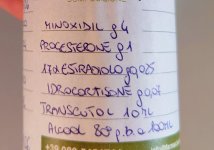 MINOXIDIL g 4
PROGESTERONE g 1
17α ESTRADIOLO g 0,025
IDROCORTISONE g 0,07
TRANSCUTOL 10 ML
ALCOOL 85° p.b. a 100ML